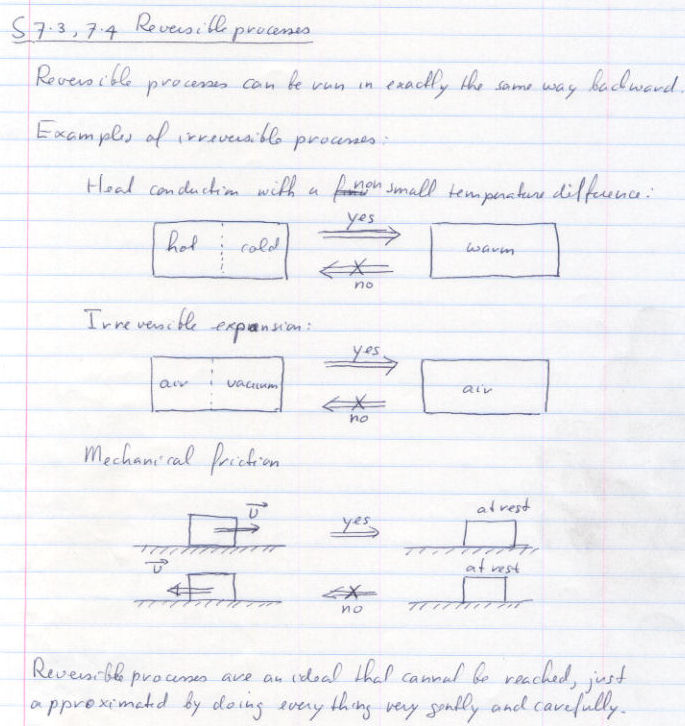 § 7.3, 7.4 Reversible processes
Reversible processes can be run in exactly the same way backward.
Examples of irreversible processes:
Heat conduction with a non small temperature difference:
hot cold yes warm
no
Irreversible expansion:
air vacuum yes air
no
Mechanical friction
v yes at rest
v no at rest
Reversible processes are an ideal that cannot be reached, just
approximated by doing everything very gently and carefully.